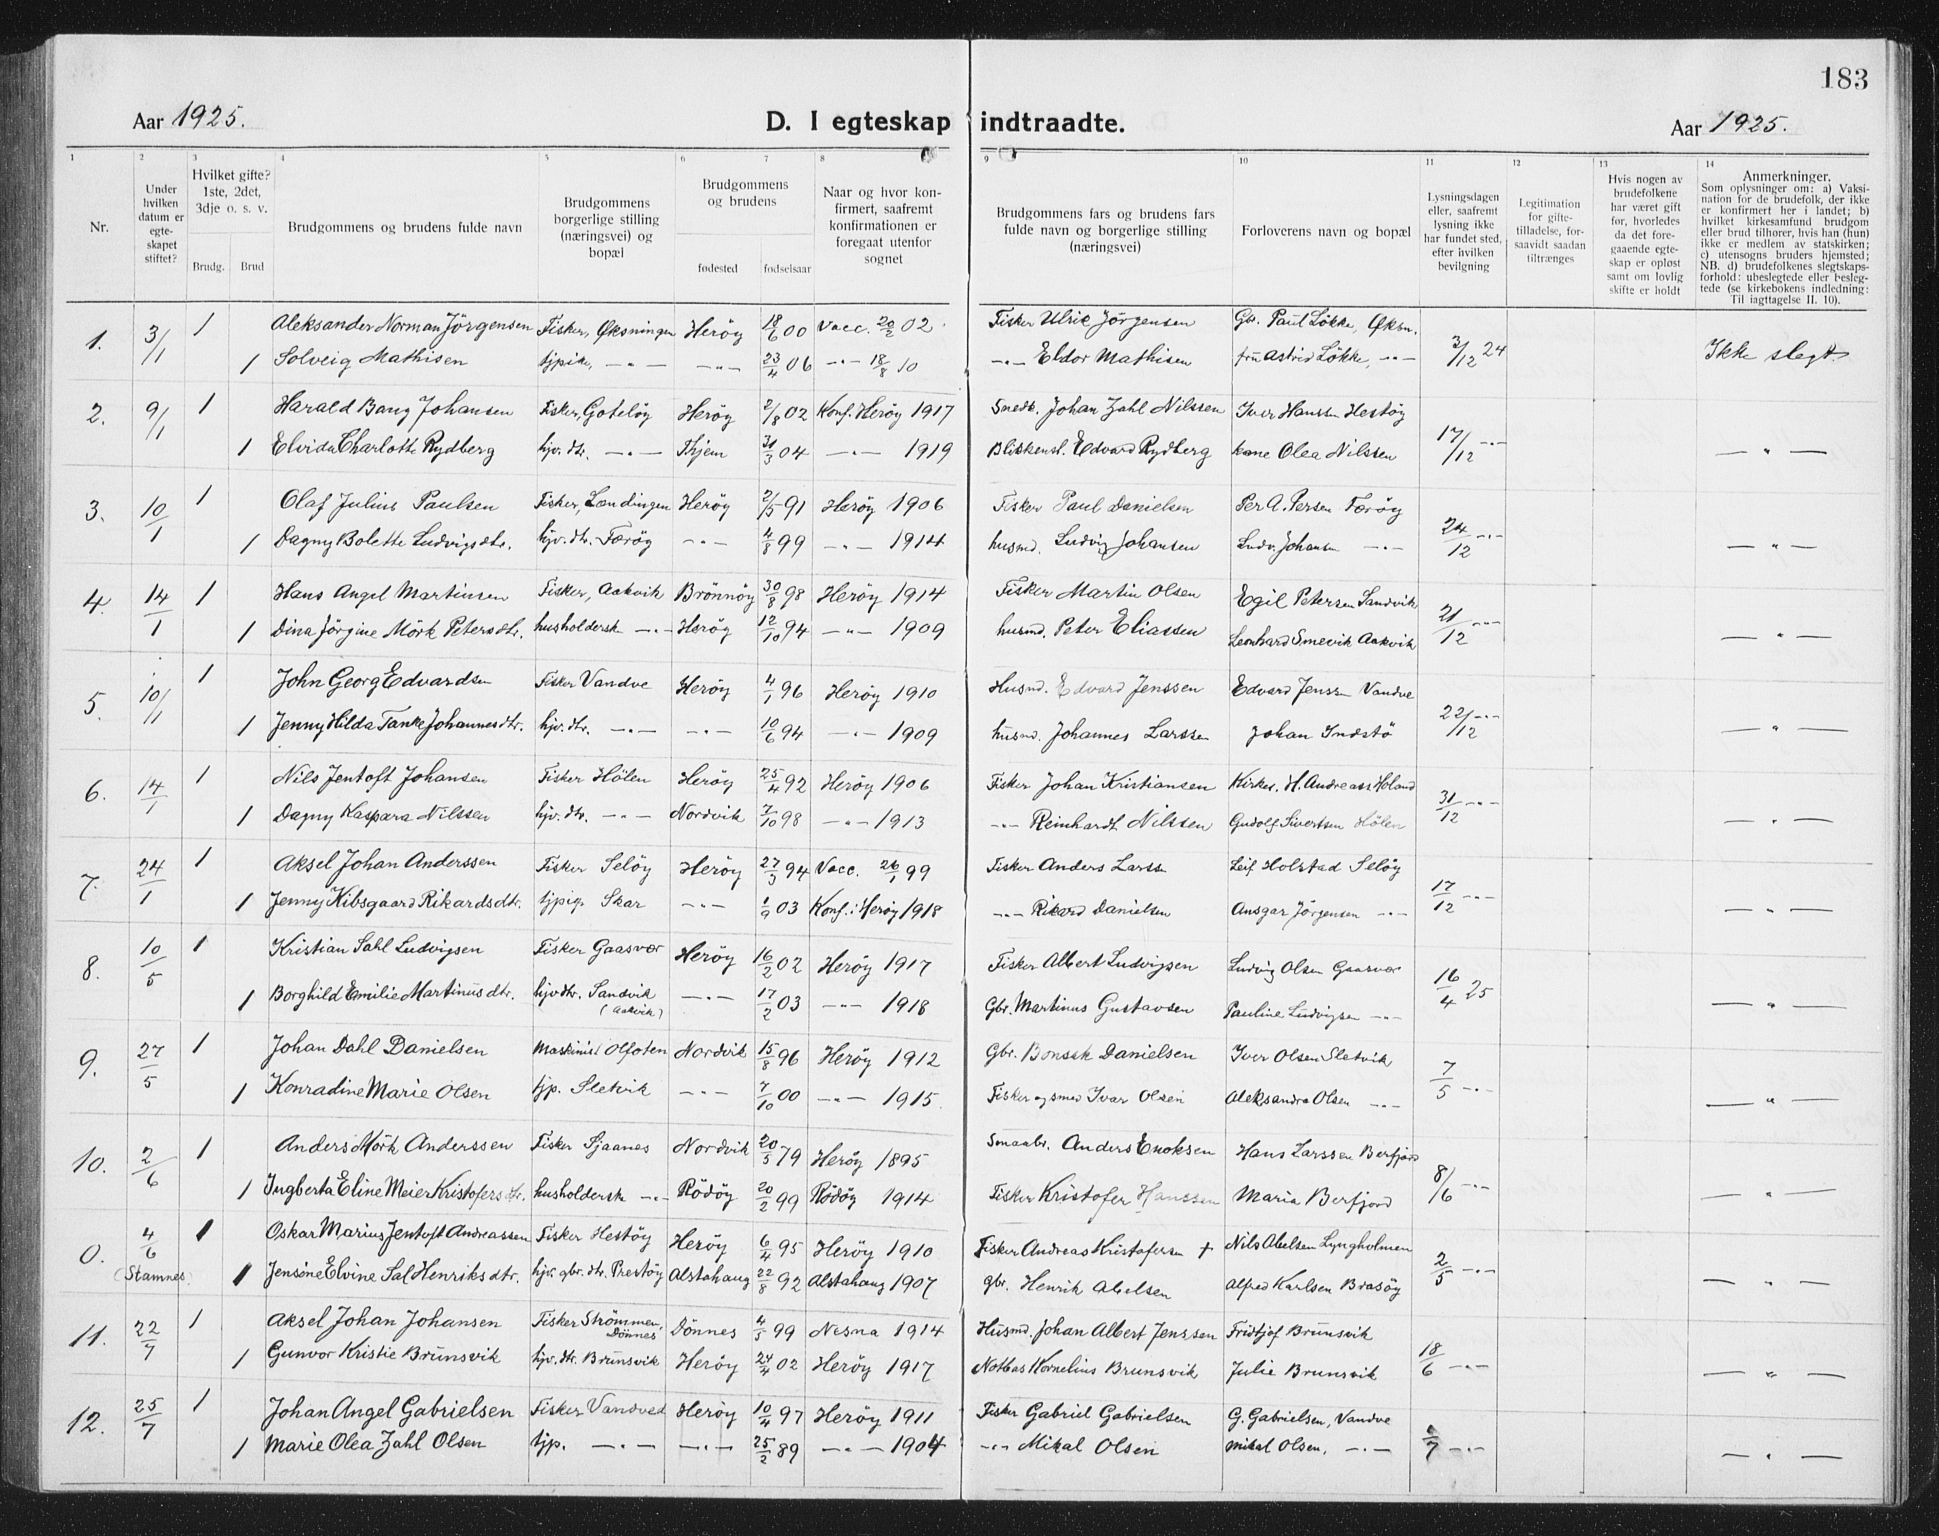 183
Aar 1925. D. I egteskap indtraadte. Aar 1925.
1 2 3 4 5 6 7 8 9 10 11 12 13 14
Nr.
Under hvilken datum er egte- skapet stiftet?
Hvilket gifte? 1ste, 2det, 3dje o. s. v.
Brudg. Brud
Brudgommens og brudens fulde navn
Brudgommens borgerlige stilling (næringsvei) og bopæl
Brudgommens og brudens
fødested fødselsaar
Naar og hvor kon- firmert, saafremt konfirmationen er foregaat utenfor sognet
Brudgommens fars og brudens fars fulde navn og borgerlige stilling (næringsvei)
Forloverens navn og bopæl
Lysningsdagen eller, saafremt lysning ikke har fundet sted, efter hvilken bevilgning
Legitimation for gifte- tilladelse, for- saavidt saadan tiltrænges
Hvis nogen av brudefolkene har været gift før, hvorledes da det fore- gaaende egte- skap er opløst samt om lovlig skifte er holdt
Anmerkninger.
Som oplysninger om: a) Vaksi- nation for de brudefolk, der ikke er konfirmert her i landet; b) hvilket kirkesamfund brudgom eller brud tilhører, hvis han (hun) ikke er medlem av statskirken; c) utensogns bruders hjemsted; NB. d) brudefolkenes slegtskaps- forhold: ubeslegtede eller beslegtede (se kirkebokens indledning: Til iagttagelse II. 10).
1. 3/1 1 Aleksander Norman Jörgensen Fisker, Øksningen Heröy 18/6 00 Vacc. 20/2 02 Fisker Ulrik Jörgensen Gbr. Paul Lökke, Øksn. 3/12 24 Ikke slegt
1 Solveig Mathisen tjpike, -"- -"- 23/4 06 -"- 18/8 10 -"- Eldor Mathisen fru Astrid Lökke, -"-
2. 9/1 1 Harald Bang Johansen Fisker, Goteløy Heröy 2/8 02 Konf. Heröy 1917 Smedk. Johan Zahl Nilssen Iver Hanssen Hestöy 17/12 -"- -"-
1 Elvida Charlotte Rydberg hjv. dtr. -"- Thjem 31/3 04 -"- 1919 Blikkensl. Edvard Rydberg kone Olea Nilssen
3. 10/1 1 Olaf Julius Paulsen Fisker, Landingen Heröy 2/5 91 Heröy 1906 Fisker Paul Danielsen Per A. Persen Færöy 24/12 -"- -"-
1 Dagny Bolette Ludvigsdtr. hjv. dtr. Færöy -"- 4/8 99 -"- 1914 husmd. Ludvig Johansen Ludv. Johansen -"-
4. 14/1 1 Hans Angel Martinsen Fisker, Aakvik Brönnöy 30/8 98 Heröy 1914 Fisker Martin Olsen Egil Petersen Sandvik 21/12 -"- -"-
1 Dina Jörgine Mörk Petersdtr. husholdersk -"- Heröy 12/10 94 -"- 1909 husmd. Peter Eliassen Leonhard Smevik Aakvik
5. 10/1 1 John Georg Edvardsen Fisker Vandve Heröy 4/1 96 Heröy 1910 Husmd. Edvard Jenssen Edvard Jenssen Vandve 22/12 -"- -"-
1 Jenny Hilda Tanke Johannesdtr. hjv. dtr. -"- -"- 10/6 94 -"- 1909 husmd. Johannes Larssen Johan Indstö
6. 14/1 1 Nils Jentoft Johansen Fisker Hölen Heröy 25/4 92 Heröy 1906 Fisker Johan Kristiansen Kirkes. H. Andreass. Holand 31/12 -"- -"-
1 Dagny Kaspara Nilssen hjv. dtr. -"- Nordvik 7/10 98 -"- 1913 -"- Reinhardt Nilssen Gudolf Sivertsen Hölen
7. 24/1 1 Aksel Johan Anderssen Fisker Selöy Heröy 27/3 94 Vacc. 26/1 99 Fisker Anders Larss Leif Holstad Selöy 17/12 -"- -"-
1 Jenny Kibsgaard Rikardsdtr. tjpige Skar -"- 1/9 03 Konf. i Heröy 1918 -"- Rikard Danielsen Ansgar Jörgensen -"-
8. 10/5 1 Kristian Sahl Ludvigsen Fisker Gaasvær Heröy 16/2 02 Heröy 1917 Fisker Albert Ludvigsen Ludvig Olsen Gaasvær 16/4 25 -"-
1 Borghild Emilie Martinusdtr. hjvdtr. Sandvik (Aakvik) -"- 17/2 03 -"- 1918 Gbr. Martinus Gustavsen Pauline Ludvigsen -"-
9. 27/5 1 Johan Dahl Danielsen Maskinist Olfoten Nordvik 15/8 96 Heröy 1912 Gbr. Bonsak Danielsen Iver Olsen Sletvik 7/5 -"- -"-
1 Konradine Marie Olsen tjp. Sletvik -"- 7/10 00 -"- 1915. Fisker og smed Ivar Olsen Aleksandra Olsen -"-
10. 2/6 1 Anders Mörk Anderssen Fisker Sjaanes Nordvik 20/5 79 Heröy 1895 Smaabr. Anders Enoksen Hans Larssen Berfjord 8/6 -"- -"-
1 Ingberta Eline Meier Kristofersdtr. husholdersk -"- Rödöy 20/2 99 Rödöy 1914 Fisker Kristofer Hanssen Maria Berfjord
0. 4/6 (Stamnes) 1 Oskar Marius Jentoft Andreassen Fisker Hestöy Heröy 6/4 95 Heröy 1910 Fisker Andreas Kristofersen + Nils Abelsen Lyngholmen 2/5 -"- -"-
1 Jensine Elvine Sal Henriksdtr. hjv. gbr. dtr. Prestöy Alstahaug 22/8 92 Alstahaug 1907 gbr. Henrik Abelsen Alfred Karlsen Brasöy
11. 22/7 1 Aksel Johan Johansen Fisker Strömmen, Dönnes Dönnes 4/5 99 Nesna 1914 Husmd. Johan Albert Jenssen Fridtjof Brunsvik 18/6 -"- -"-
1 Gunvor Kristie Brunsvik hjv. dtr. Brunsvik Heröy 24/4 02 Heröy 1917 Notbas Kornelius Brunsvik Julie Brunsvik
12. 25/7 1 Johan Angel Gabrielsen Fisker Vandved Heröy 10/4 97 Heröy 1911 Fisker Gabriel Gabrielsen G. Gabrielsen, Vandve /7 -"- -"-
1 Marie Olea Zahl Olsen tjp. -"- -"- 25/2 89 -"- 1904 -"- Mikal Olsen Mikal Olsen, -"-